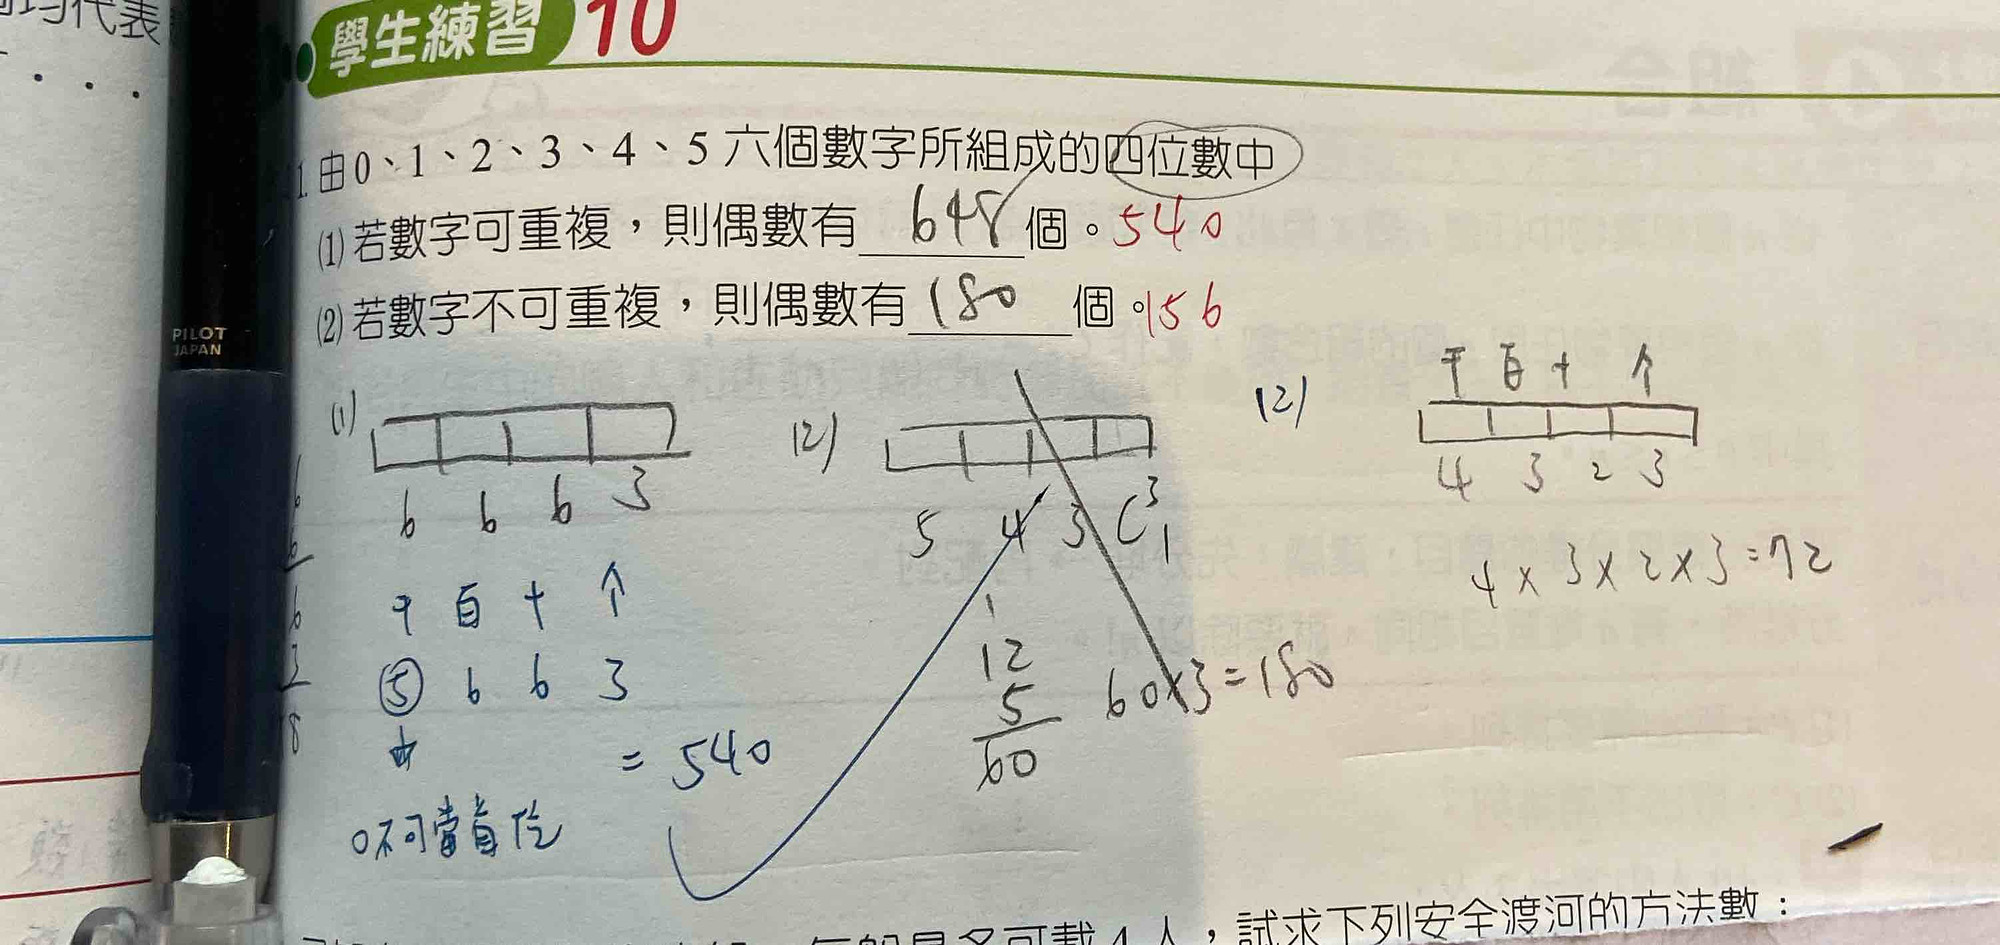 均代表
學生練習 10
1. 由0、1、2、3、4、5 六個數字所組成的四位數中
⑴ 若數字可重複，則偶數有 648 個。540
⑵ 若數字不可重複，則偶數有 180 個。156
PILOT
JAPAN
(1)
6 6 6 3
千 百 十 个
⑤ 6 6 3
= 540
0不可當首位
(2)
5 4 3 C³₁
12
5
60
60×3=180
(2)
千 百 十 个
4 3 2 3
4×3×2×3=72
6
6
6
3
8
4 人，試求下列安全渡河的方法數：